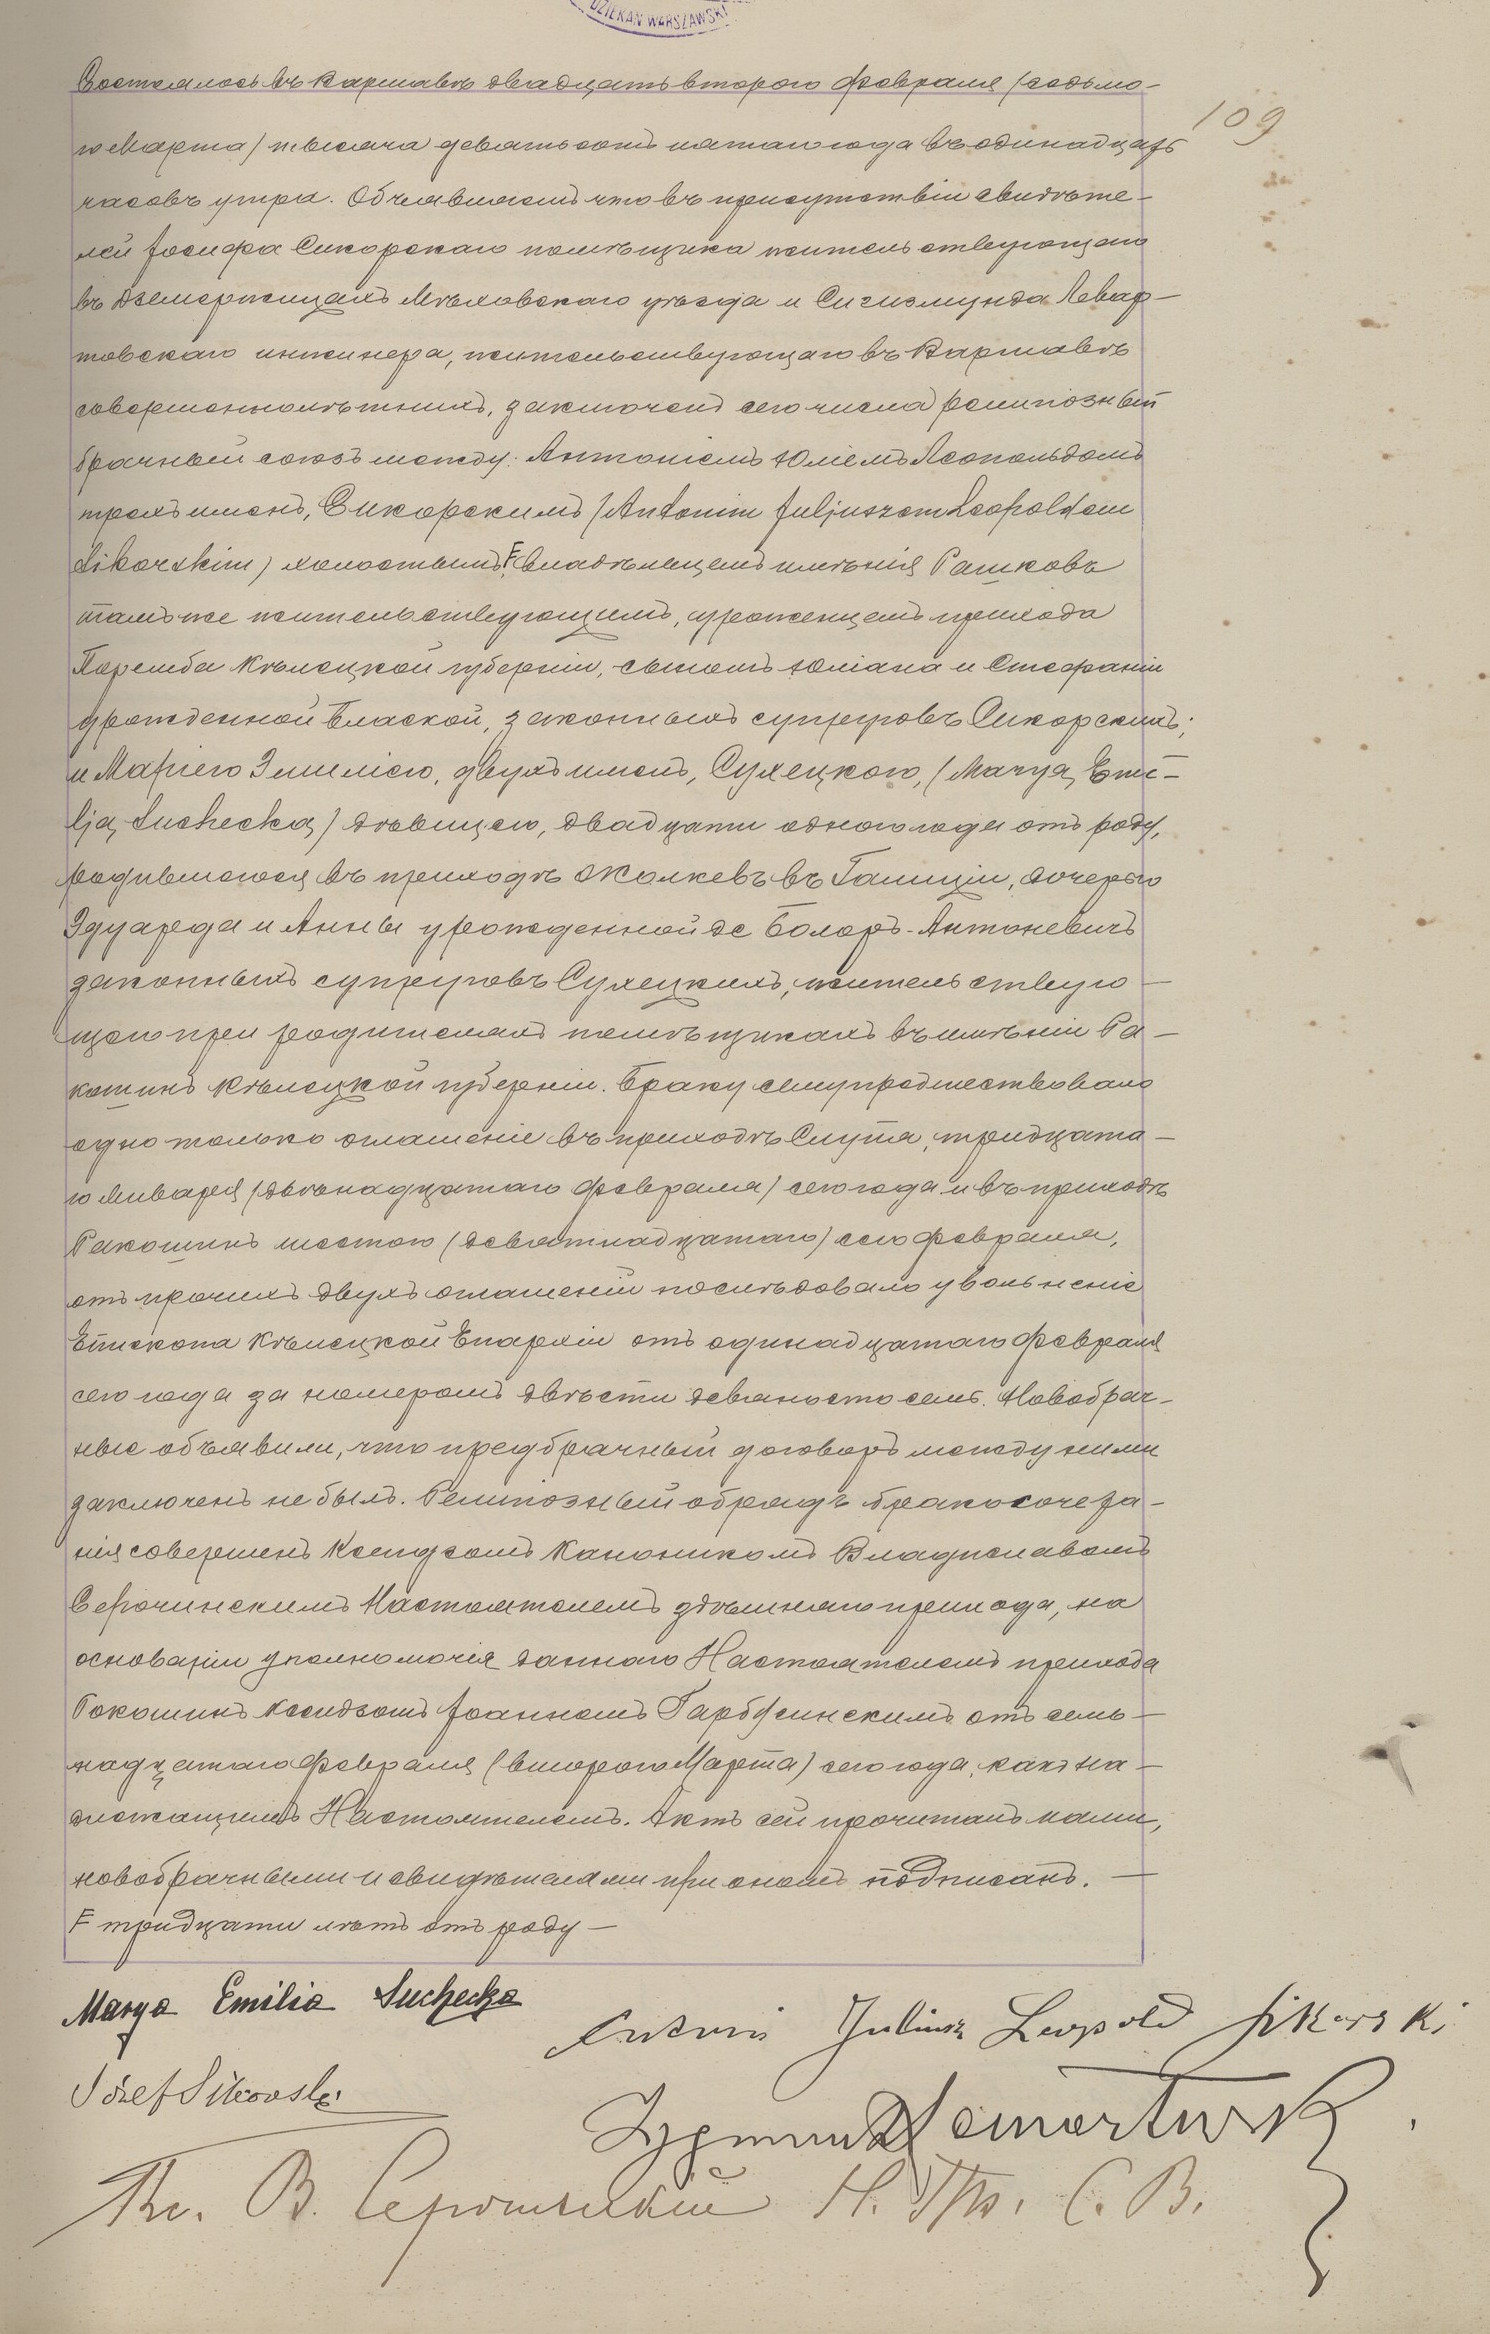 DZIEKAN WARSZAWSKI
109
Состоялось въ Варшавѣ двадцать второго Февраля (седьмо-
го Марта) тысяча девятьсотъ пятаго года въ одинадцать
часовъ утра. Объявляемъ что въ присутствіи свидѣте-
лей Іосифа Сикорскаго помѣщика жительствующаго
въ Дземержицахъ Мѣховскаго уѣзда и Сигизмунда Левар-
товскаго инженера, жительствующаго въ Варшавѣ
совершеннолѣтнихъ, заключенъ сего числа религіозный
брачный союзъ между: Антоніемъ Юліемъ Леопольдомъ
трехъ именъ, Сикорскимъ (Antonim Juljuszem Leopoldem
Sikorskim) холостымъ, F владѣльцемъ имѣнія Рашковъ
тамъ же жительствующимъ, уроженцемъ прихода
Поремба Кѣлецкой губерніи, сыномъ Юліана и Стефаніи
урожденной Блаской, законныхъ супруговъ Сикорскихъ;
и Маріею Эмиліею, двухъ именъ, Сухецкою, (Maryą Emi-
lją Suchecką) дѣвицею, двадцати одного года отъ роду,
родившеюся въ приходѣ Жолкевъ въ Галиціи, дочерью
Эдуарда и Анны урожденной де Болозъ-Антоневичъ
законныхъ супруговъ Сухецкихъ, жительствую-
щею при родителяхъ помѣщикахъ въ имѣніи Ра-
кошинъ Кѣлецкой губерніи. Браку сему предшествовало
одно только оглашеніе въ приходѣ Слупя, тридцата-
го Января (двѣнадцатаго Февраля) сего года и въ приходѣ
Ракошинъ шестого (девятнадцатаго) сего Февраля,
отъ прочихъ двухъ оглашеній послѣдовало увольненіе
Епископа Кѣлецкой Епархіи отъ одинадцатаго Февраля
сего года за номеромъ двѣсти девяносто семь. Новобрач-
ные объявили, что предбрачный договоръ между ними
заключенъ не былъ. Религіозный обрядъ бракосочета-
нія совершенъ Ксендзомъ Каноникомъ Владиславомъ
Серочинскимъ Настоятелемъ здѣшняго прихода, на
основаніи уполномочія даннаго Настоятелемъ прихода
Рокошинъ Ксендзомъ Іоанномъ Гарбусинскимъ отъ семь-
надцатаго Февраля (второго Марта) сего года, какъ на-
длежащимъ Настоятелемъ. Актъ сей прочитанъ нами,
новобрачными и свидѣтелями при ономъ подписанъ.
F тридцати лѣтъ отъ роду
Marya Emilia Suchecka
Antoni Juliusz Leopold Sikorski
Józef Sikorski
Zygmunt Lewartowski
Кс. В. Серочинскій Н. С. В.